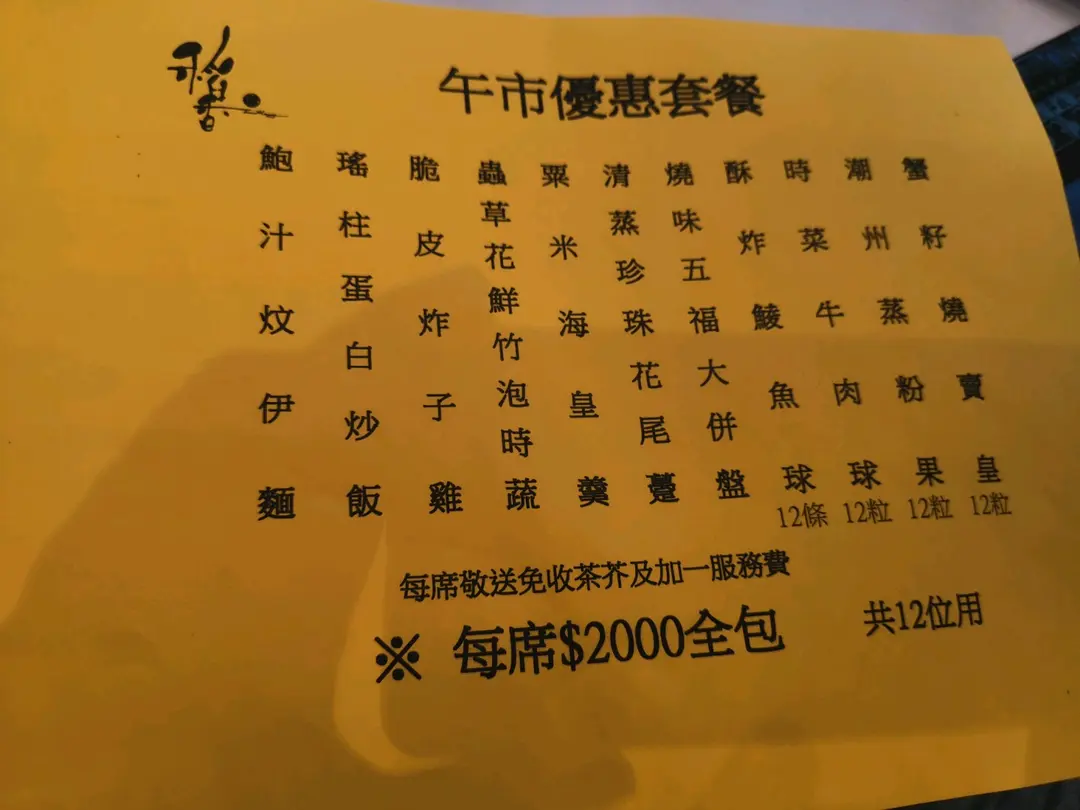 午市優惠套餐
蟹籽燒賣皇
12粒
潮州蒸粉果
12粒
時菜牛肉球
12粒
酥炸鯪魚球
12條
燒味五福大併盤
清蒸珍珠花尾躉
粟米海皇羹
蟲草花鮮竹泡時蔬
脆皮炸子雞
瑤柱蛋白炒飯
鮑汁炆伊麵
每席敬送免收茶芥及加一服務費
※ 每席$2000全包
共12位用